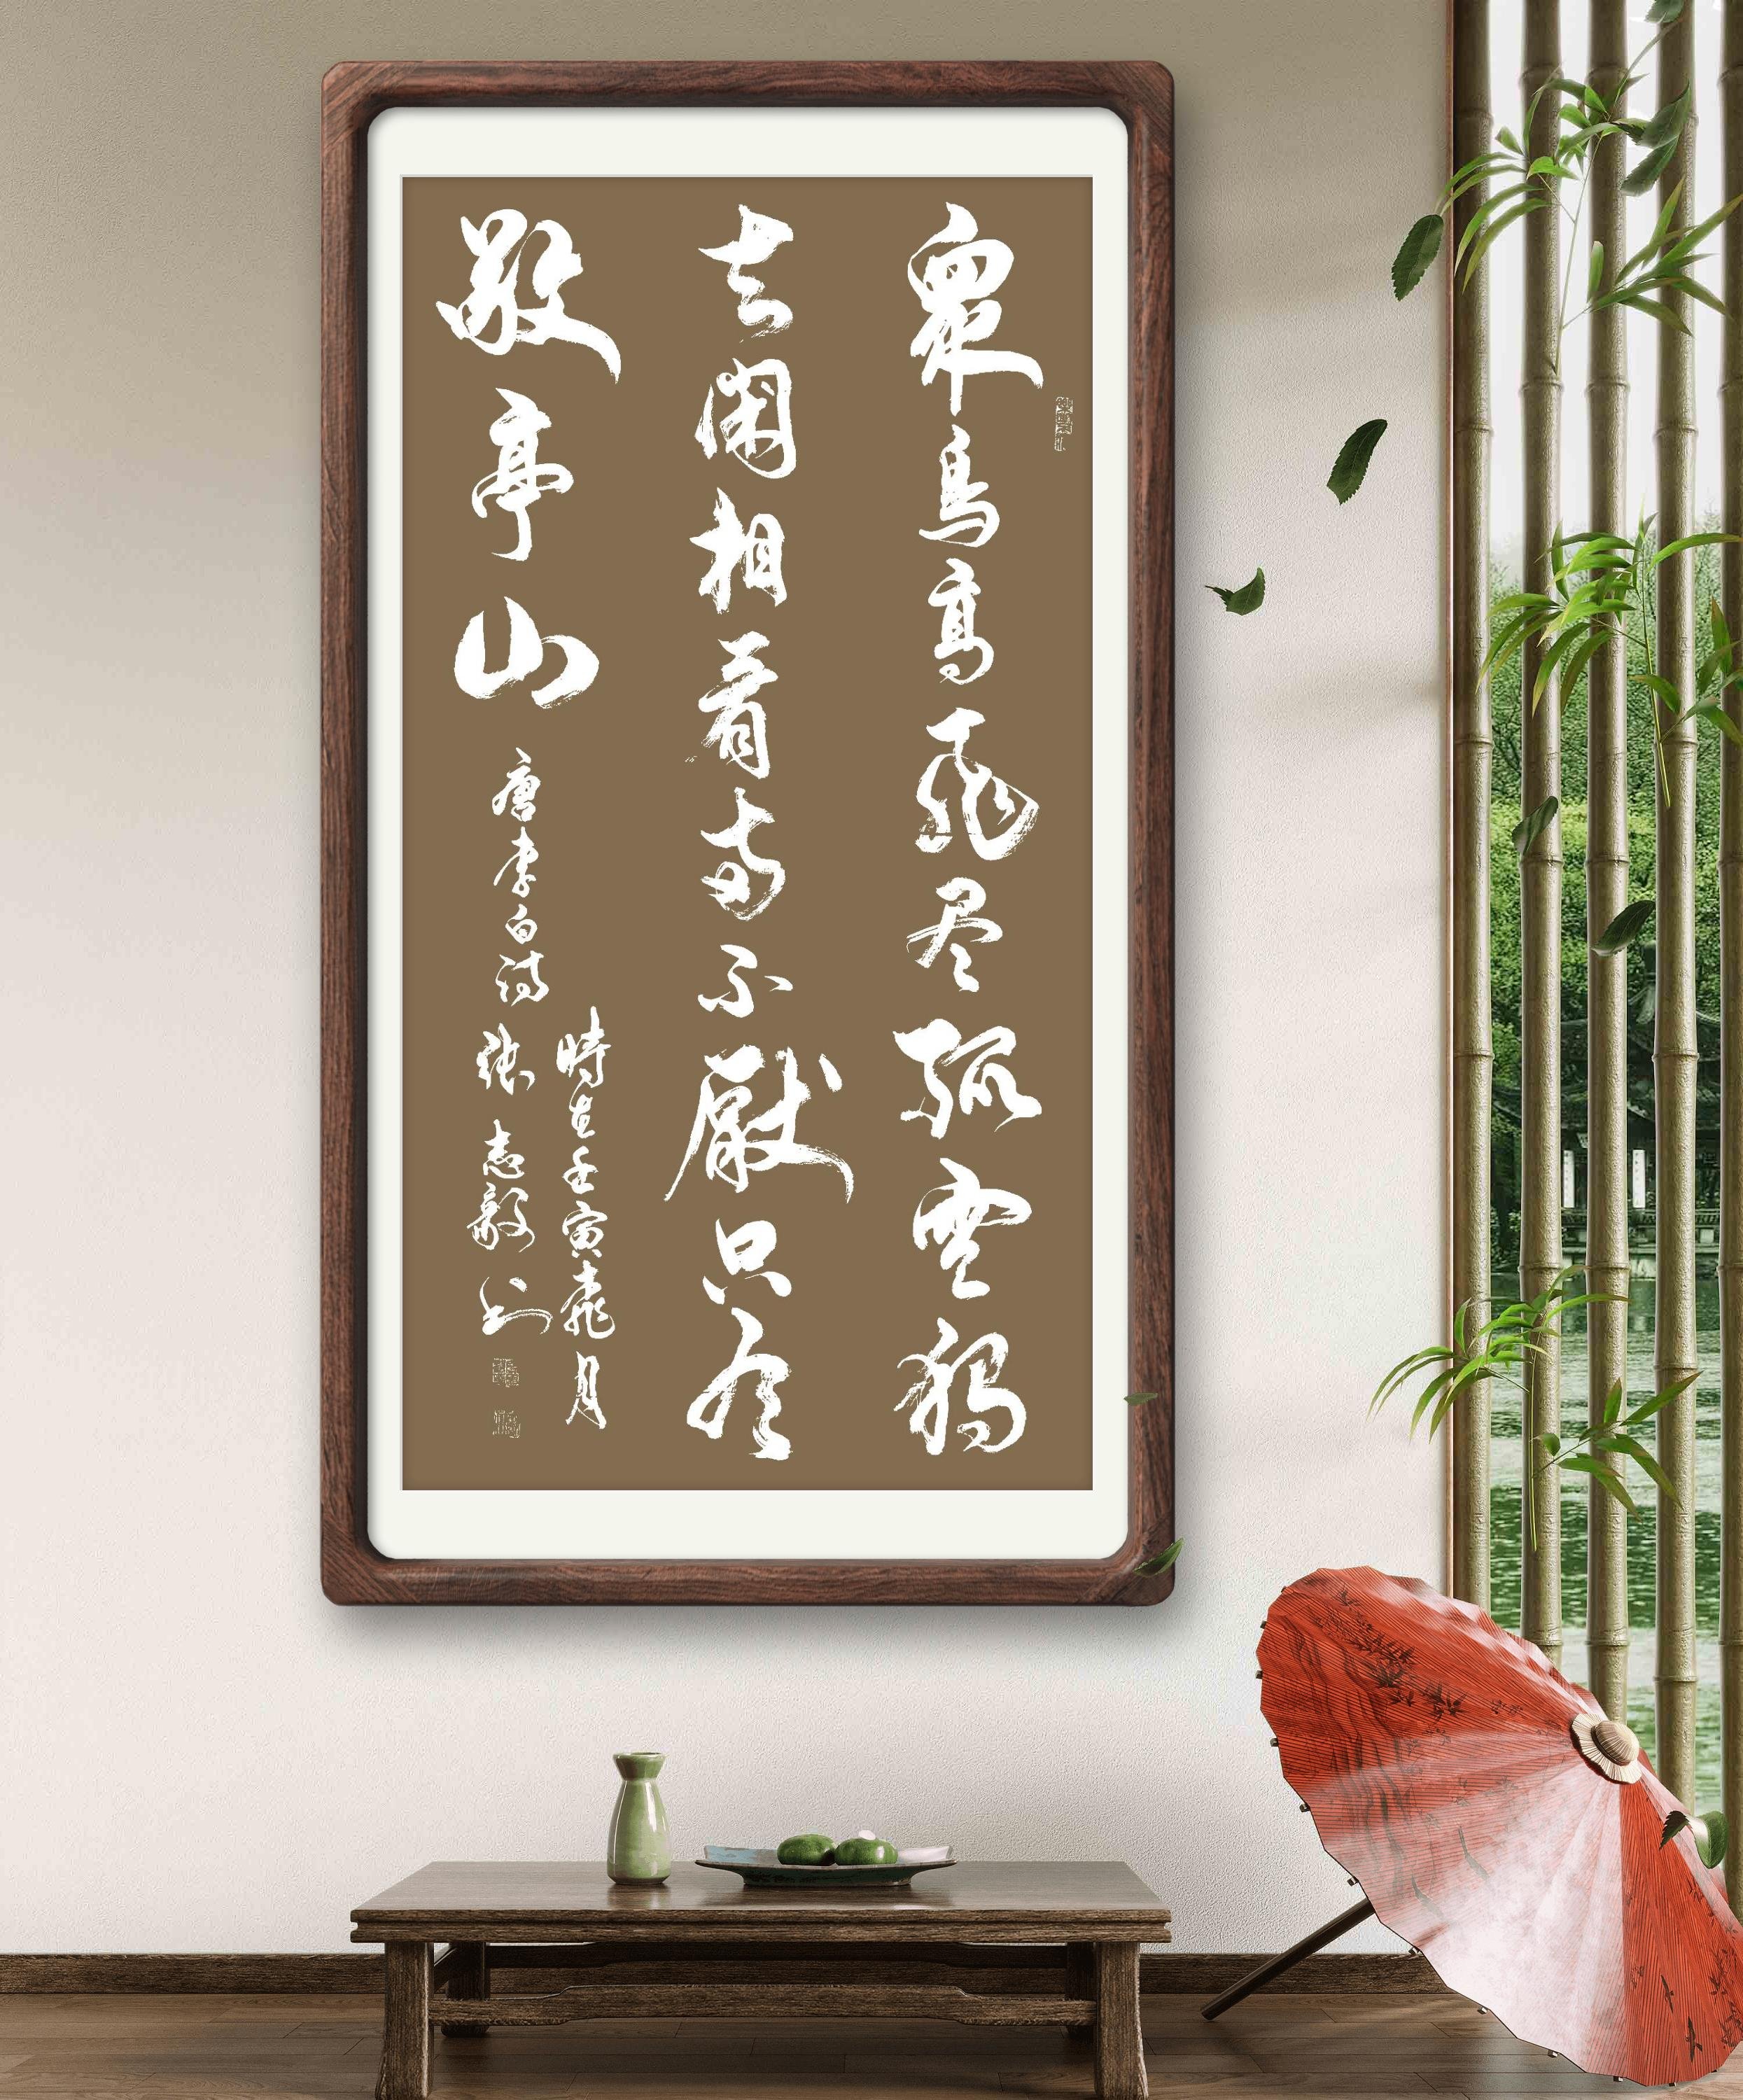 衆鳥高飛尽孤雲獨
去閑相看两不厭只有
敬亭山
唐李白詩
時在壬寅桃月
張志毅书